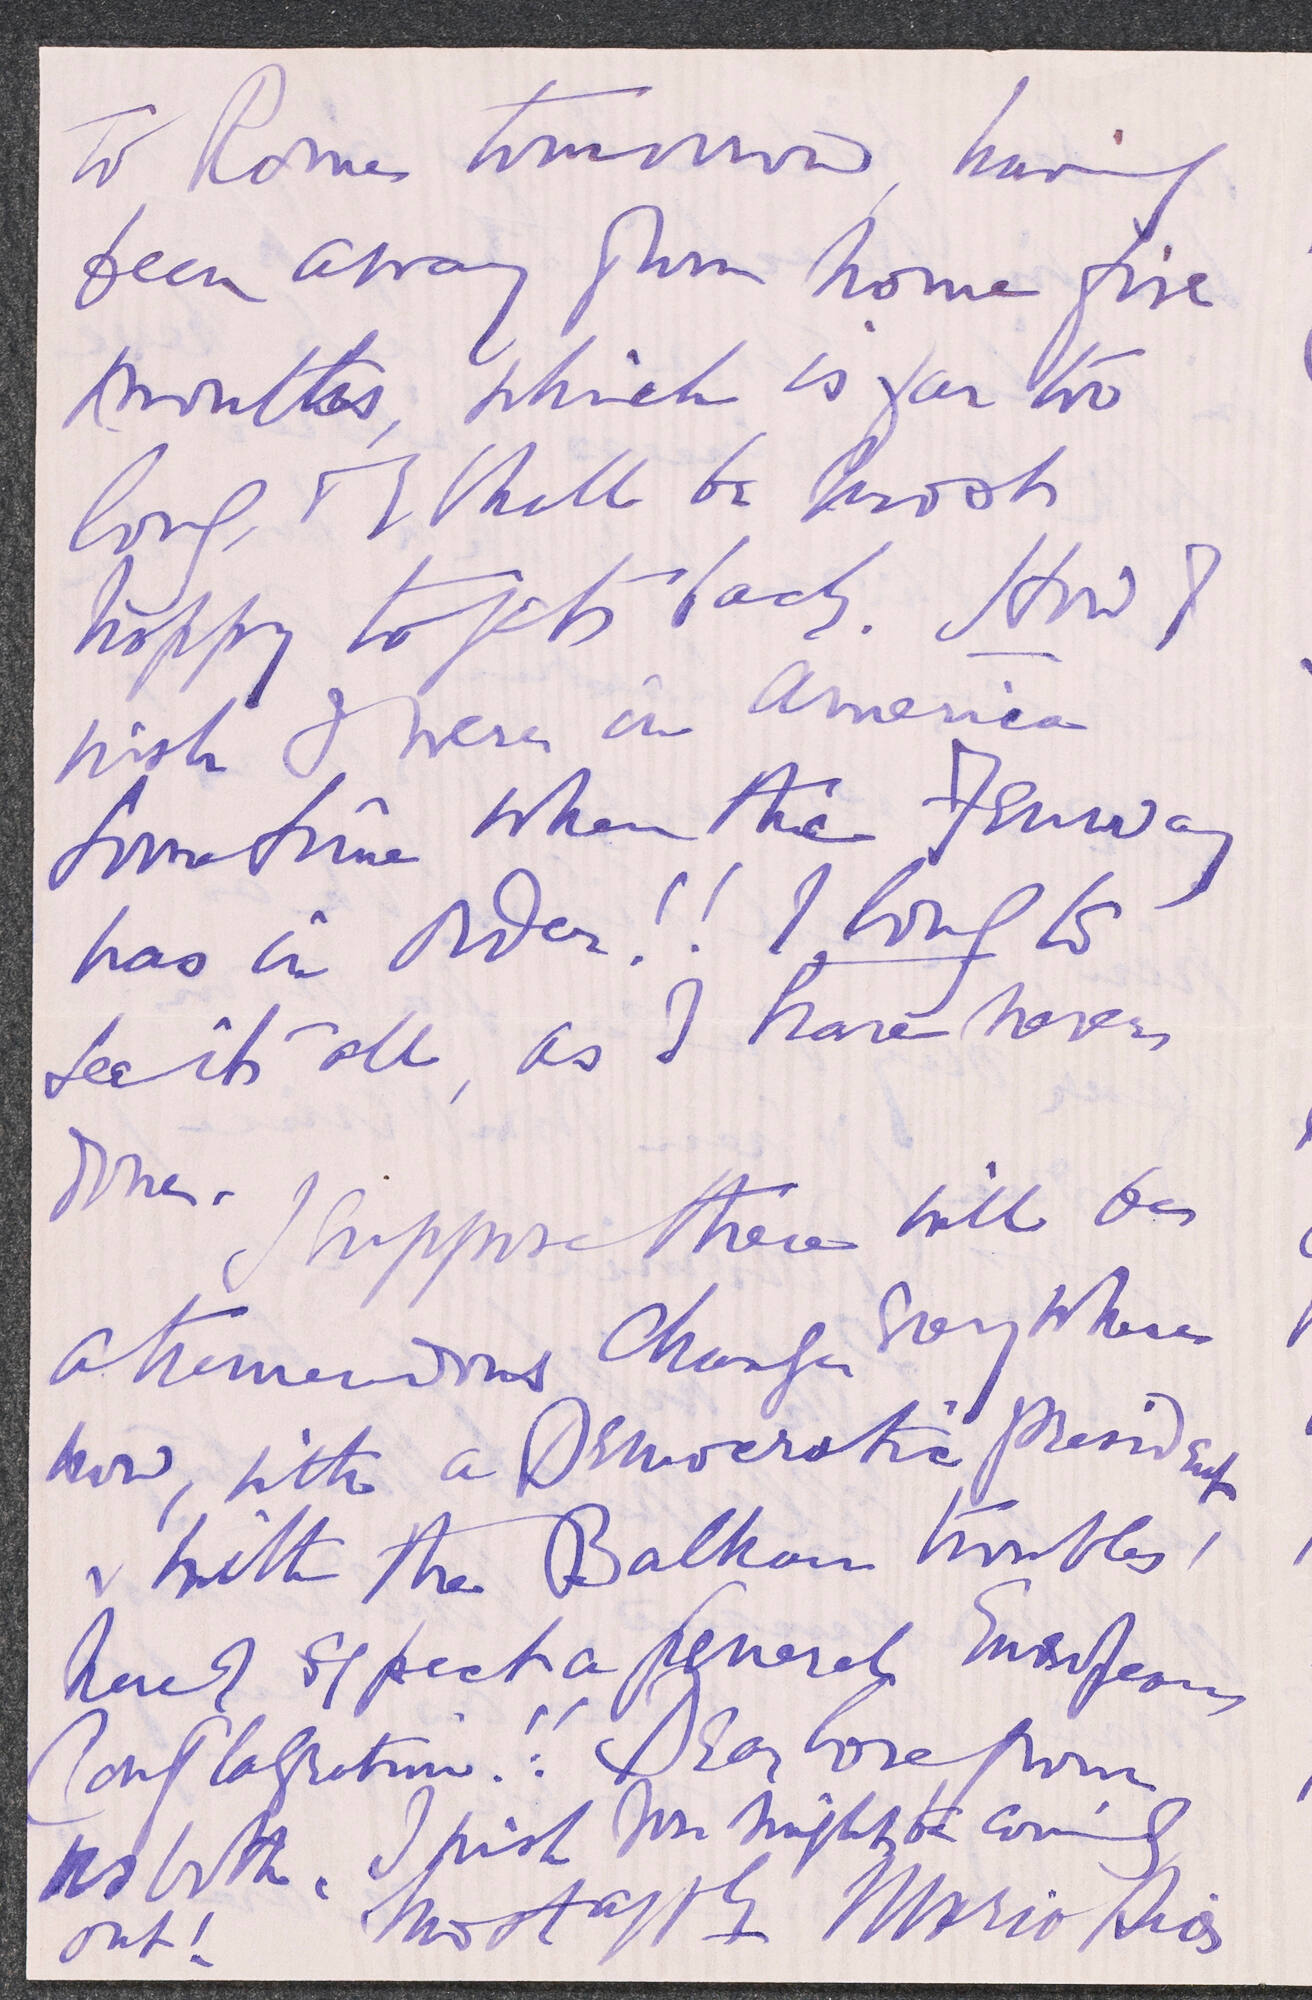 to Rome tomorrow, having
been away from home five
months, which is far too
long, & I shall be most
happy to get back. How I
wish I were in America
sometime when the Fenway
was in order!! I long to
see it all, as I have never
done.
I suppose there will be
a tremendous change everywhere
now, with a Democratic president
& with the Balkan troubles!
here I expect a general European
Conflagration!! Dear love from
us both. I wish you might be coming
out! Most affly